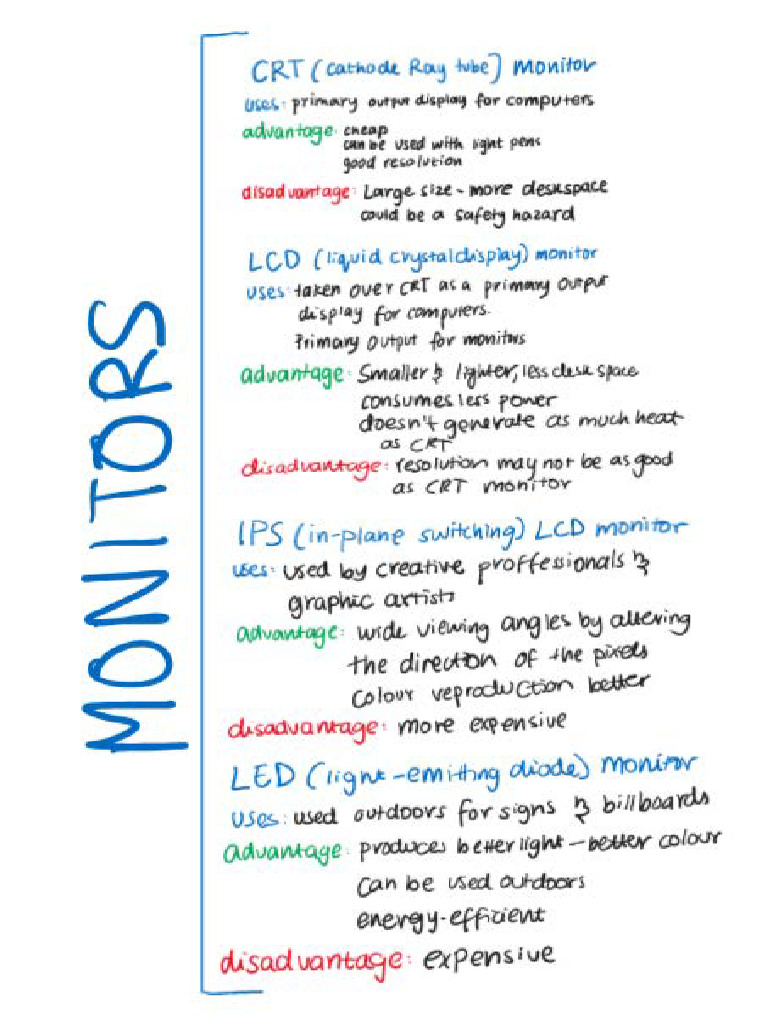 MONITORS
CRT (Cathode Ray tube) monitor
uses: primary output display for computers
advantage: cheap
can be used with light pens
good resolution
disadvantage: Large size - more deskspace
could be a safety hazard
LCD (liquid crystal display) monitor
uses: taken over CRT as a primary output
display for computers.
Primary output for monitors
advantage: Smaller & lighter, less desk space
consumes less power
doesn't generate as much heat
as CRT
disadvantage: resolution may not be as good
as CRT monitor
IPS (in-plane switching) LCD monitor
uses: used by creative proffessionals &
graphic artists
advantage: wide viewing angles by altering
the direction of the pixels
colour reproduction better
disadvantage: more expensive
LED (light-emitting diode) monitor
uses: used outdoors for signs & billboards
advantage: produces better light - better colour
can be used outdoors
energy-efficient
disadvantage: expensive